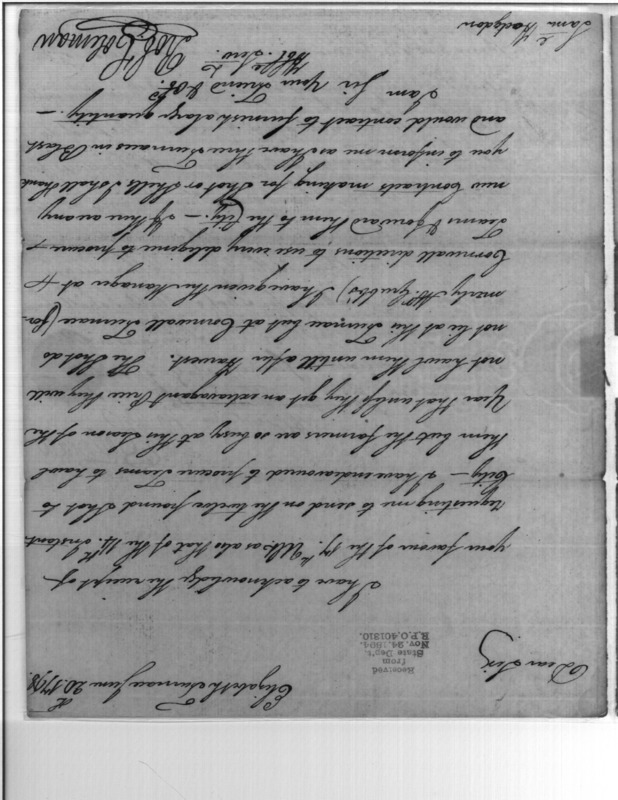 Elizabeth Furnace June 20th 1798.
Received
from
State Dep't.
Nov. 24, 1894.
R.P.O. 401310.
Dear Sir,
I have to acknowledge the receipt of
your favors of the 17th Ulto. as also that of the 14th Instant
requesting me to send on the twelve pound Shot to
City — I have endeavoured to procure Teams to hawl
them but the farmers are so busy at this Season of the
Year that unless they get an extravagant Price they will
not hawl them untill after Harvest. The Shot do
not lie at this Furnace but at Cornwall Furnace (for-
merly Mr. Grubb's) I have given the Manager at
Cornwall directions to use every diligence to procure
Teams & forward them to the City. — If there are any
new Contracts making for Shot or Shells I shall thank
you to inform me as I have three Furnaces in Blast
and would contract to furnish a large quantity. —
I am Sir
Your Friend &
Hble Servt.
Robt. Coleman
Saml. Hodgdon